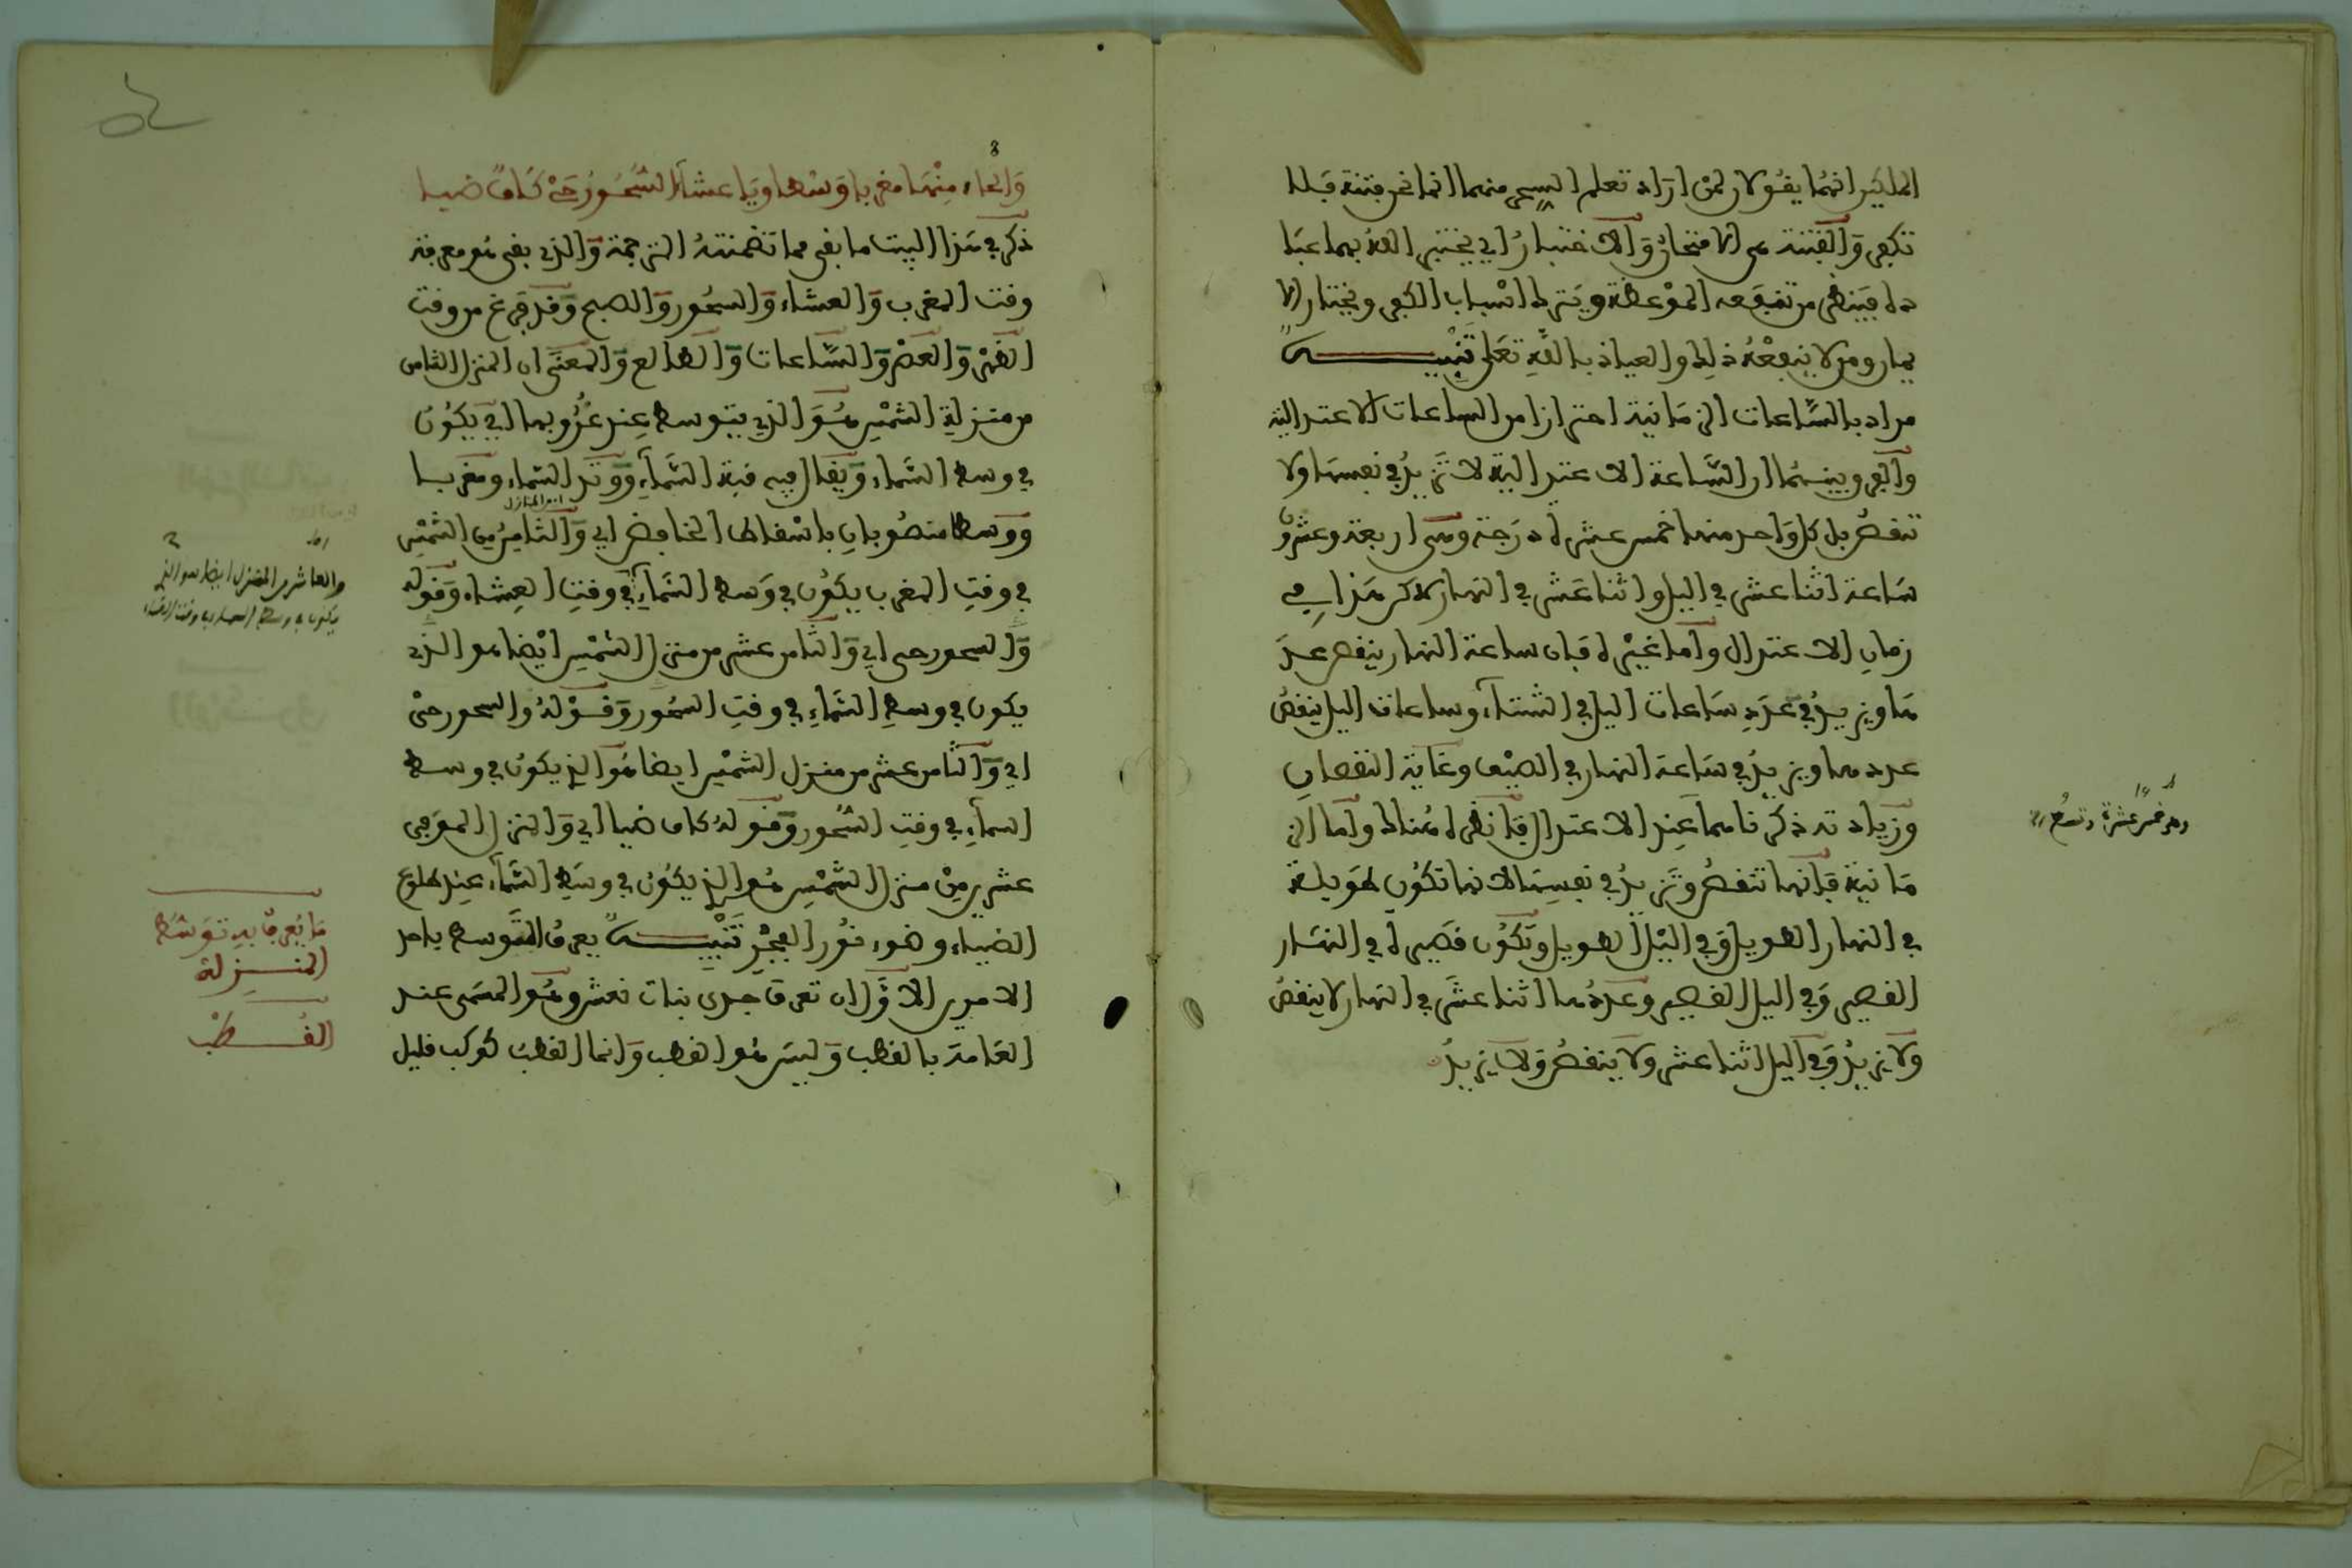 الملكين انهما يقولان لمن اراد تعلم السحر منهما انما نحن فتنة فلا
تكفر والفتنة هي الامتحان والاختبار اي يختبر الله بهما عبا
ده فينظر من تنفعه الموعظة ويترك اسباب الكفر ويختار الا
يمان ومن لا ينفعه ذلك والعياذ بالله تعلى تنبيه
مراده بالساعات الزمانية احترازا من الساعات الاعتدالية
والفرق بينهما ان الساعة الاعتدالية لا تزيد في نفسها ولا
تنقص بل كل واحد منها خمس عشرة درجة وهي اربعة وعشرون
ساعة اثنا عشر في اليل واثنا عشر في النهار لاكن هذا في
زمان الاعتدال واما غيره فان ساعة النهار ينقص عدد
ها ويزيد في عدد ساعات اليل في الشتاء وساعات اليل ينقص
عددها ويزيد في ساعة النهار في الصيف وغاية النقصان
وزيادته ذكرناهما عند الاعتدال فانظره هناك واما الز
مانية فانها تنقص وتزيد في نفسها لانها تكون طويلة
في النهار الطويل وفي اليل الطويل وتكون قصيرة في النهار
القصير وفي اليل القصير وعددها اثنا عشر في النهار لا ينقص
ولا يزيد وفي اليل اثنا عشر ولا ينقص ولا يزيد
وهو خمس عشرة وتسع
والحاء منها مغربا وسطا ويا عشاء السحور حي كاف ضيا
ذكر في هذا البيت ما بقي مما تضمنته الترجمة والذي بقي هو معرفة
وقت المغرب والعشاء والسحور والصبح وقد فرغ من وقت
الظهر والعصر والساعات والطالع والمعنى ان المنزل الثامن
من منزلة الشمس هو الذي يتوسط عند غروبها اي يكون
في وسط السماء ويقال فيه قبة السماء ووتد السماء ومغربا
ووسطا منصوبان باسقاط الخافض اي والثامن من الشمس
في وقت المغرب يكون في وسط السماء في وقت العشاء وقوله
والعاشر من المنزل ايضا هو الذي
يكون في وسط السماء في وقت العشاء
والسحور حي اي والثامن عشر من منزل الشمس ايضا هو الذي
يكون في وسط السماء في وقت السحور وقوله والسحور حي
اي والثامن عشر من منزل الشمس ايضا هو الذي يكون في وسط
السماء في وقت السحور وقوله كاف ضيا اي والمنزل الموفي
عشرين من منزل الشمس هو الذي يكون في وسط السماء عند طلوع
الضياء وضوء نور الفجر تنبيه يعرف التوسط باحد
الامرين الاول ان تعرف جدي بنات نعش وهو المسمى عند
العامة بالقطب وليس هو القطب وانما القطب كوكب قليل
ما يعرف به توسط
المنزلة
القطب